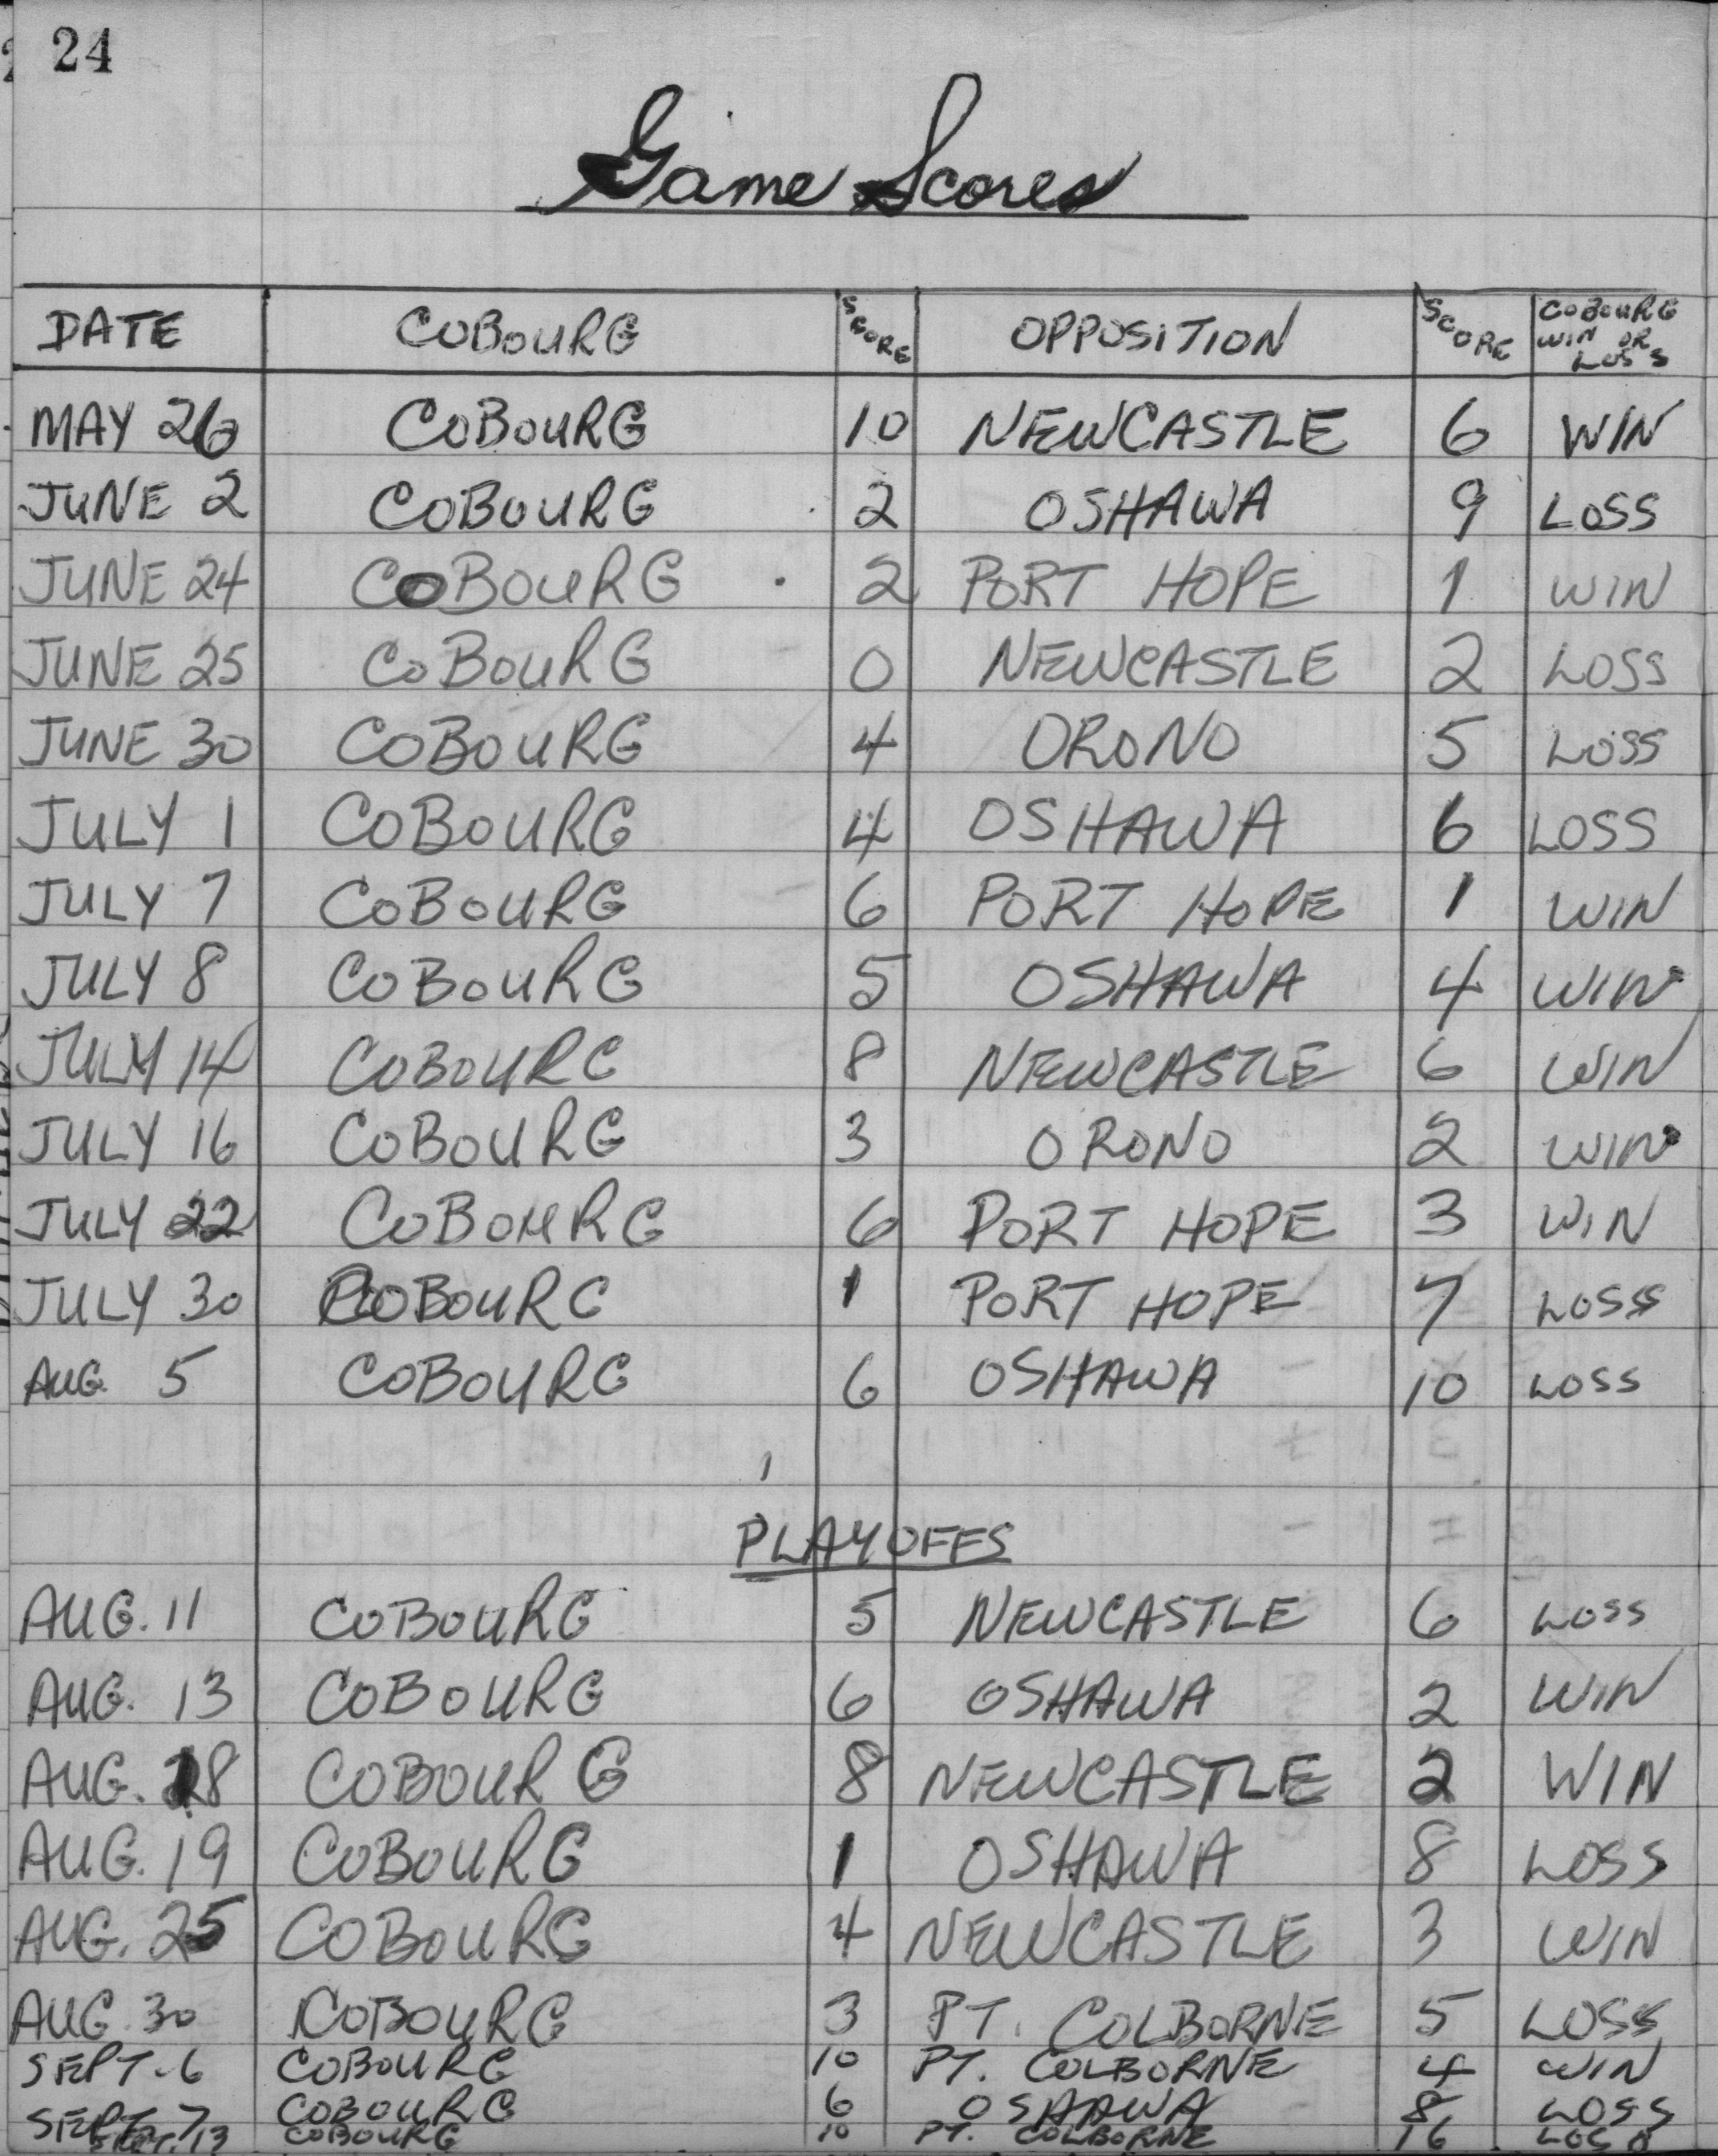 24
Game Scores
DATE COBOURG SCORE OPPOSITION SCORE COBOURG WIN OR LOSS
MAY 26 COBOURG 10 NEWCASTLE 6 WIN
JUNE 2 COBOURG 2 OSHAWA 9 LOSS
JUNE 24 COBOURG 2 PORT HOPE 1 WIN
JUNE 25 COBOURG 0 NEWCASTLE 2 LOSS
JUNE 30 COBOURG 4 ORONO 5 LOSS
JULY 1 COBOURG 4 OSHAWA 6 LOSS
JULY 7 COBOURG 6 PORT HOPE 1 WIN
JULY 8 COBOURG 5 OSHAWA 4 WIN
JULY 14 COBOURG 8 NEWCASTLE 6 WIN
JULY 16 COBOURG 3 ORONO 2 WIN
JULY 22 COBOURG 6 PORT HOPE 3 WIN
JULY 30 COBOURG 1 PORT HOPE 7 LOSS
AUG. 5 COBOURG 6 OSHAWA 10 LOSS
PLAYOFFS
AUG. 11 COBOURG 5 NEWCASTLE 6 LOSS
AUG. 13 COBOURG 6 OSHAWA 2 WIN
AUG. 18 COBOURG 8 NEWCASTLE 2 WIN
AUG. 19 COBOURG 1 OSHAWA 8 LOSS
AUG. 25 COBOURG 4 NEWCASTLE 3 WIN
AUG. 30 COBOURG 3 PT. COLBORNE 5 LOSS
SEPT. 6 COBOURG 10 PT. COLBORNE 4 WIN
SEPT. 7 COBOURG 6 OSHAWA 8 LOSS
SEPT. 13 COBOURG 10 PT. COLBORNE 16